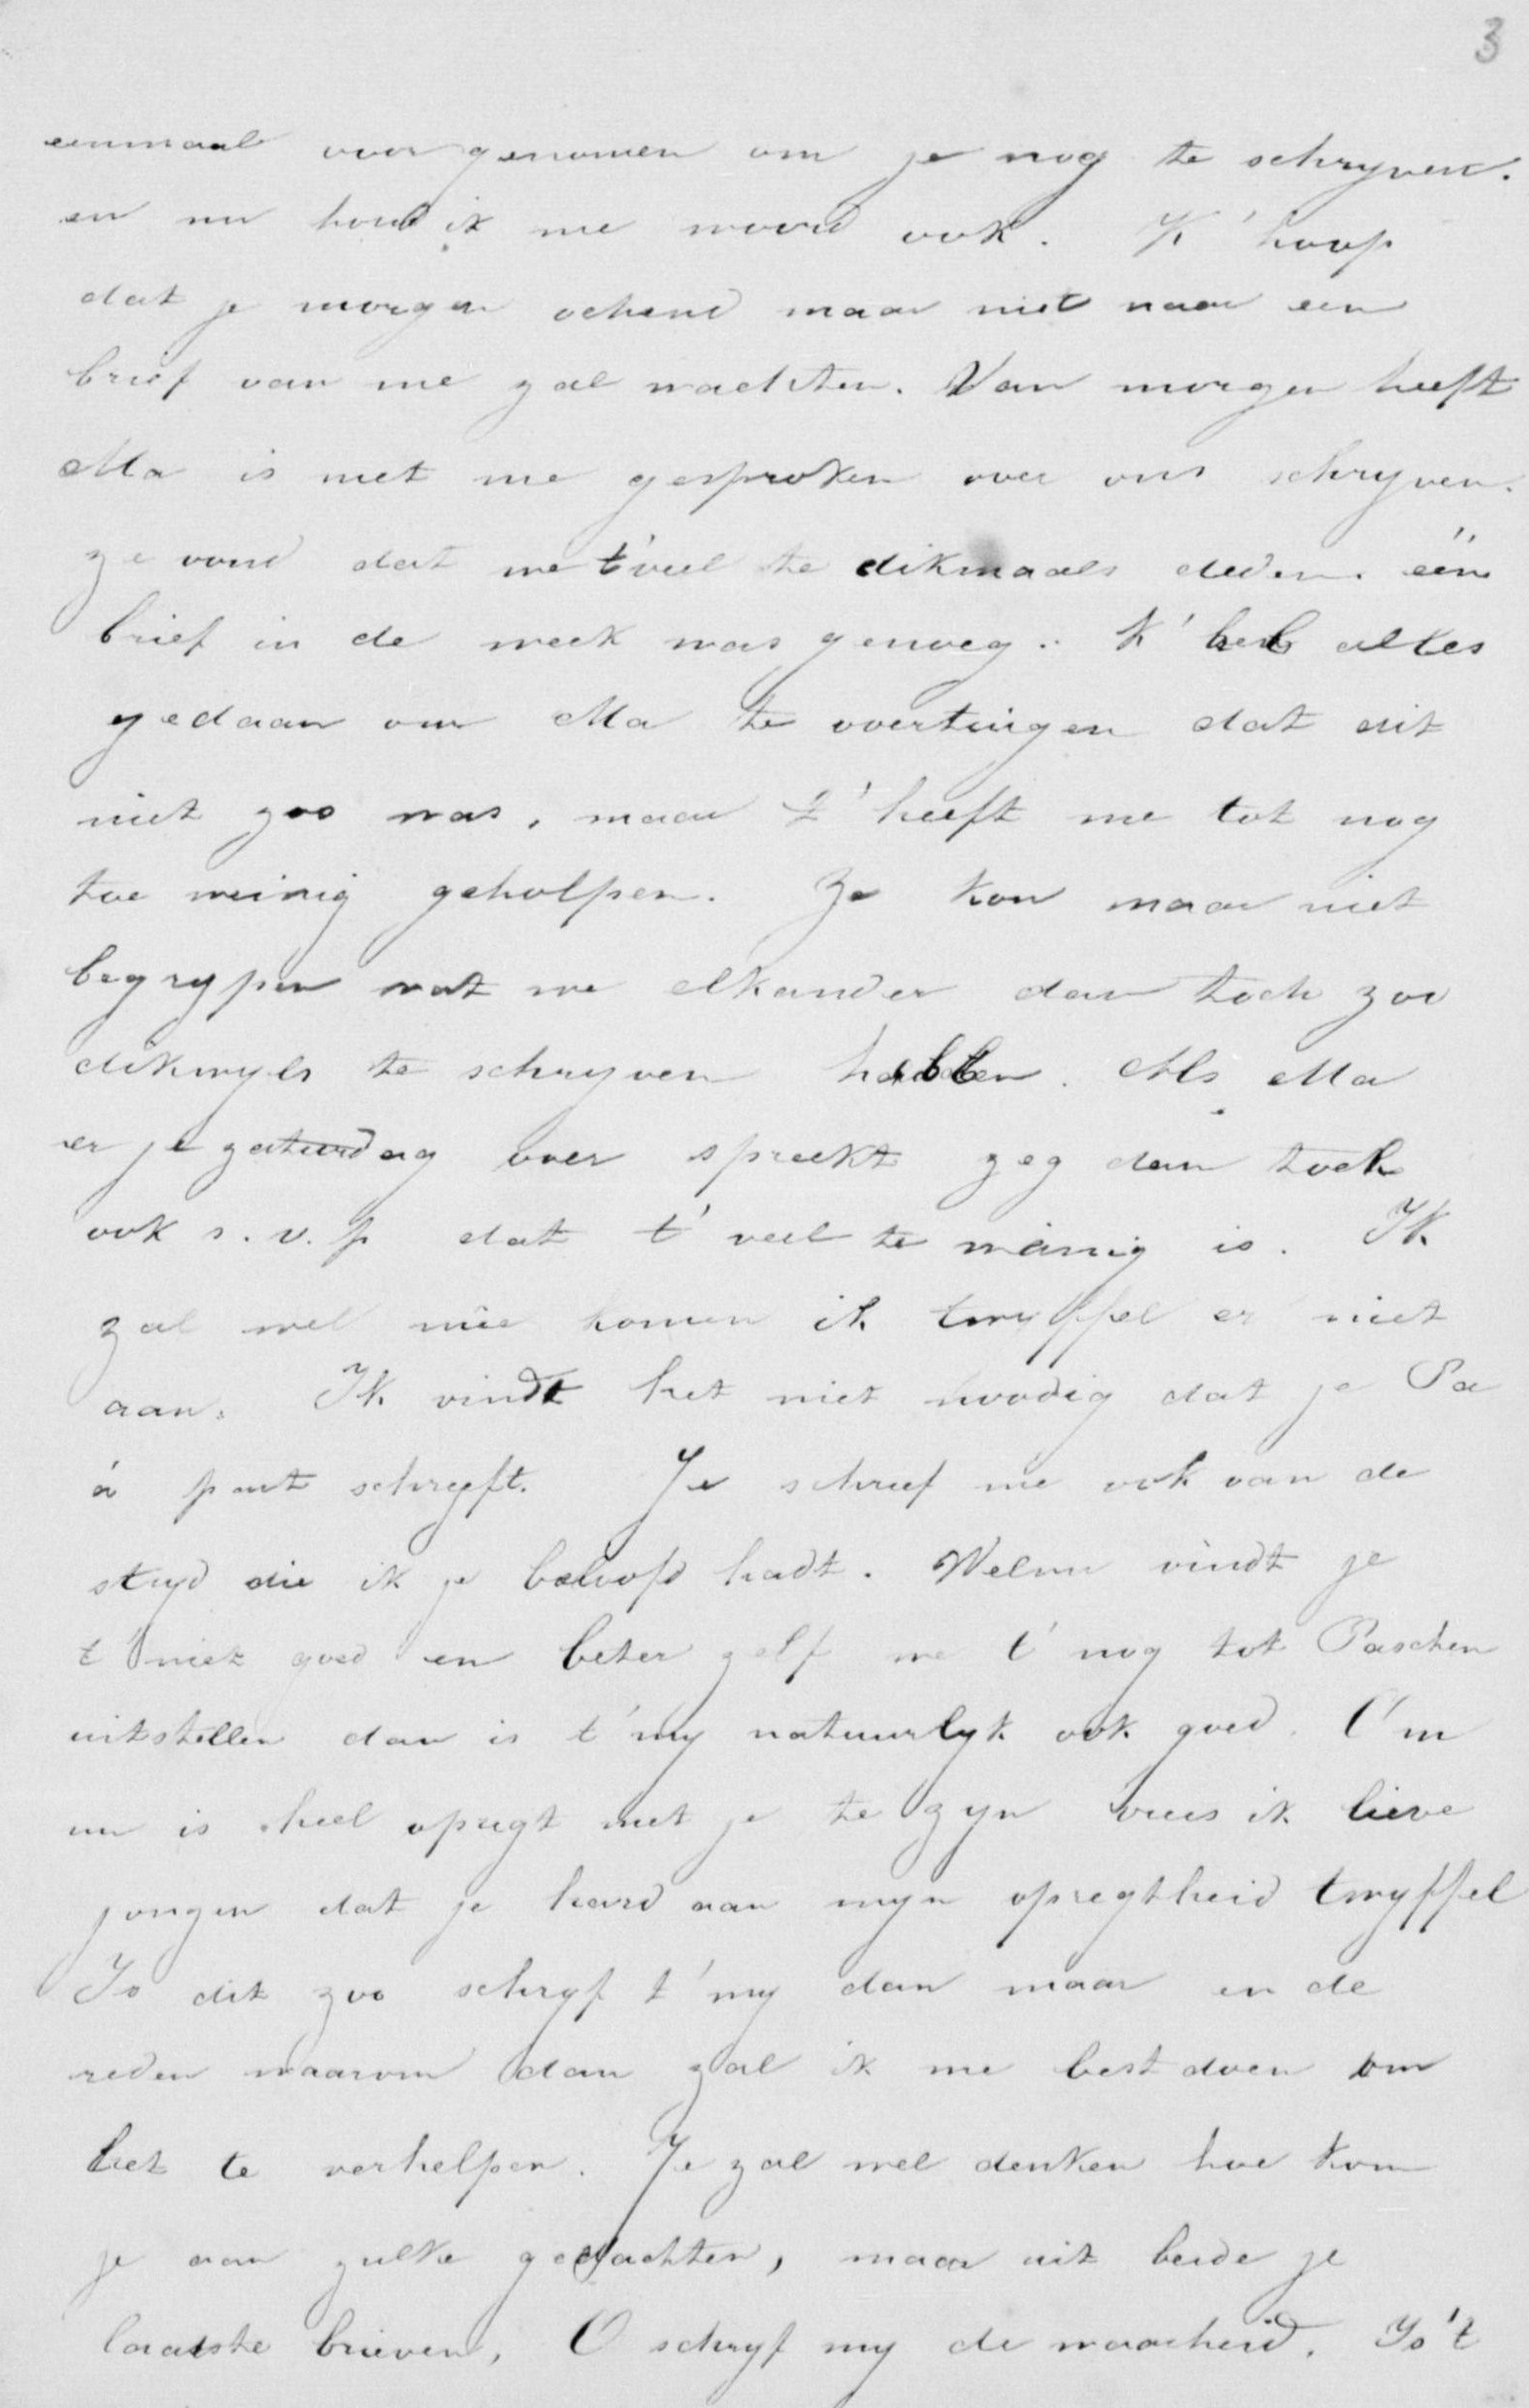 3
eenmaal voorgenomen om je nog te schryven.
en nu houd ik me woord ook. K' hoop
dat je morgen ochend maar niet naar een
brief van me zal wachten. Van morgen heeft
Ma is met me gesproken over ons schryven.
ze vond dat we t'veel te dikmaals deden. één
brief in de week was genoeg. K' heb alles
gedaan om Ma te overtuigen dat dit
niet zoo was, maar t' heeft me tot nog
toe weinig geholpen. Ze kon maar niet
begrypen wat we elkander dan toch zoo
dikwyls te schryven hadden. Als Ma
er je zaturdag over spreekt zeg dan toch
ook s.v.p dat t' veel te weinig is. Ik
zal wel mee komen ik twyffel er niet
aan. Ik vindt het niet noodig dat je Pa
á part schryft. Je schreef me ook van de
stryd die ik je beloofd hadt. Welnu vindt je
t' niet goed en beter zelf we t' nog tot Paschen
uitstellen dan is t' my natuurlyk ook goed. O'm
nu is heel opregt met je te zyn vrees ik lieve
jongen dat je hard aan myn opregtheid twyffel
Is dit zoo schryf t' my dan maar en de
reden waarom dan zal ik me best doen om
het te verhelpen. Je zal wel denken hoe kom
je aan zulke gedachten, maar uit beide je
laatste brieven, O schryf my de waarheid. Is't